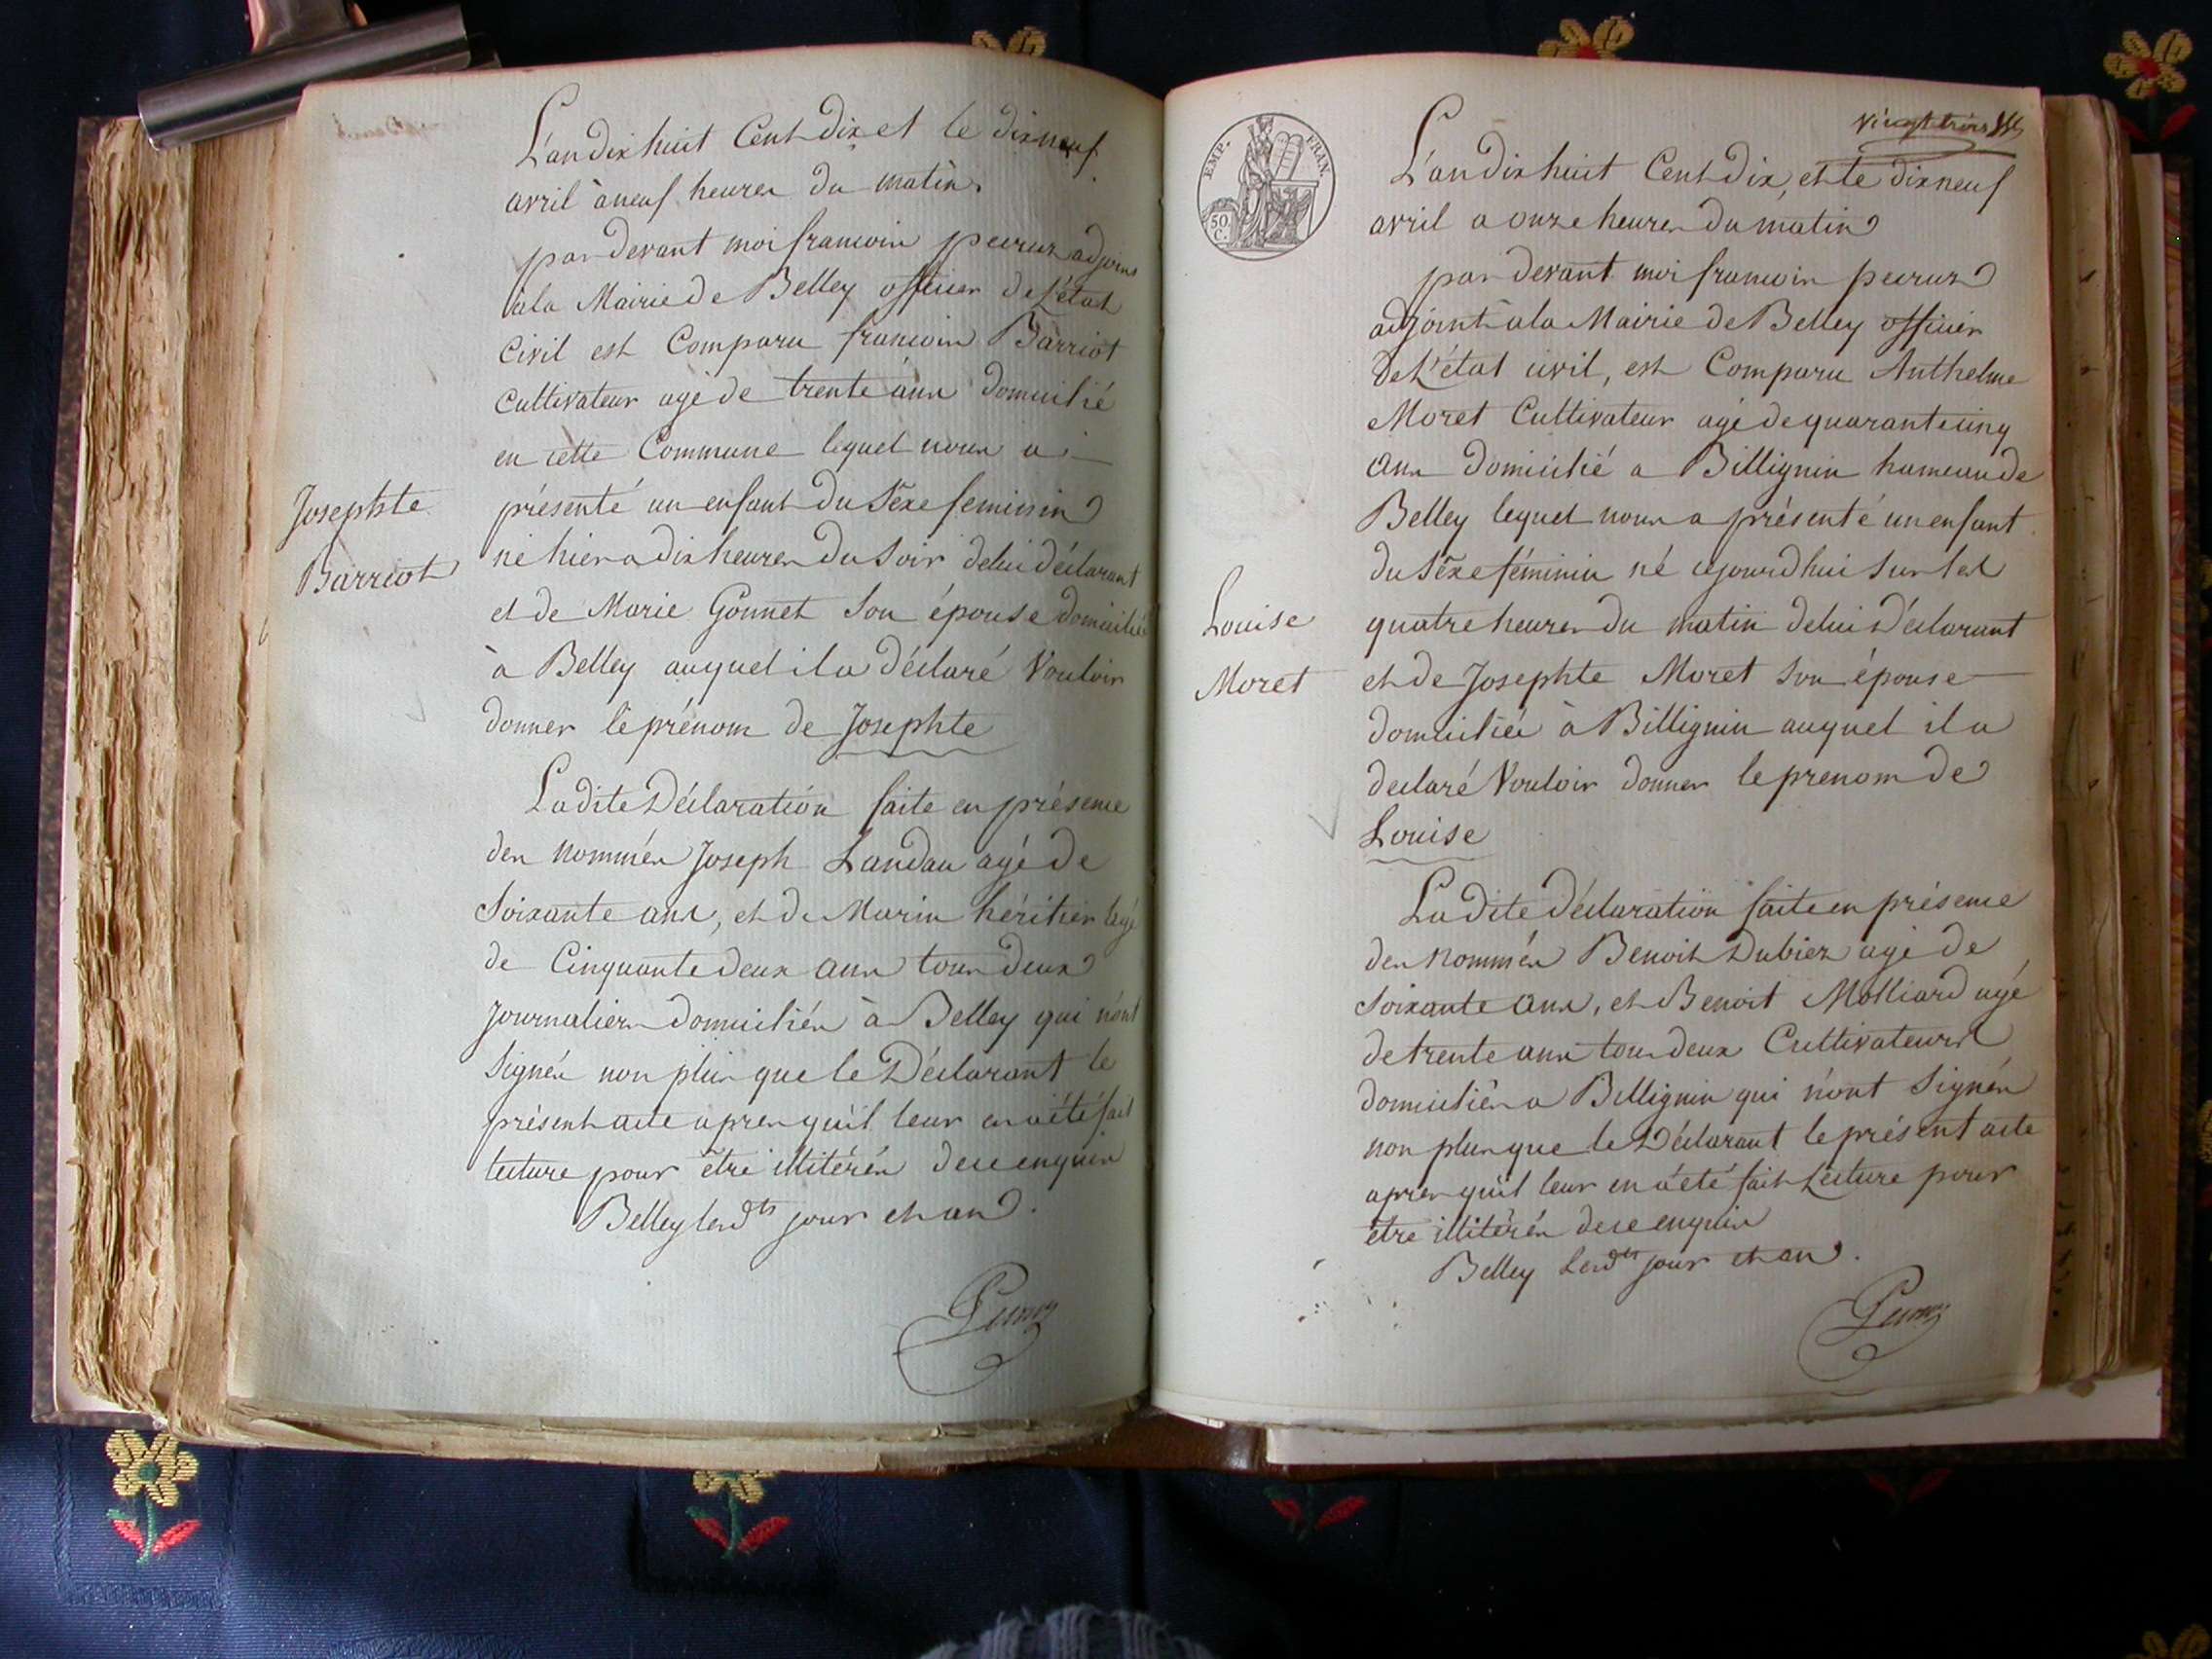 L'an dix huit Cent dix et le dix neuf
avril à neuf heures du matin
par devant moi francois peeruz adjoint
à la Mairie de Belley officier de L'état
Civil est Comparu francois Barriot
Cultivateur agé de trente ans domicilié
en cette Commune lequel nous a
présenté un enfant du Sexe feminin
né hier a dix heures du Soir de lui déclarant
et de Marie Gonnet Son épouse domiciliée
à Belley auquel il a déclaré Vouloir
donner le prénom de Josephte
Josephte
Barriot
La dite Déclaration faite en présence
des nommés Joseph Landau agé de
Soixante ans, et de Marin héritier agé
de Cinquante deux ans tous deux
Journaliers domiciliés à Belley qui n'ont
Signés non plus que le Déclarant le
présent acte apres qu'il leur en a été fait
lecture pour être illitérés de ce enquis
Belley les dts jour et an.
EMP. FRAN.
50 C.
vingt trois
L'an dix huit Cent dix, et le dix neuf
avril a onze heures du matin
par devant moi francois peeruz
adjoint à la Mairie de Belley officier
de L'état civil, est Comparu Anthelme
Moret Cultivateur agé de quarante cinq
ans domicilié a Billignin hameau de
Belley lequel nous a présenté un enfant
du Sexe féminin né cejourd'hui Sur les
quatre heures du matin de lui Déclarant
et de Josephte Moret Son épouse
domiciliée à Billignin auquel il a
declaré Vouloir donner le prenom de
Louise
Louise
Moret
La dite déclaration faite en présence
des nommés Benoit Dubiez agé de
Soixante ans, et Benoit Molliard agé
de trente ans tous deux Cultivateurs
domiciliés a Billignin qui n'ont Signés
non plus que le Déclarant le présent acte
apres qu'il leur en a été fait Lecture pour
être illitérés de ce enquis
Belley les dts jour et an.